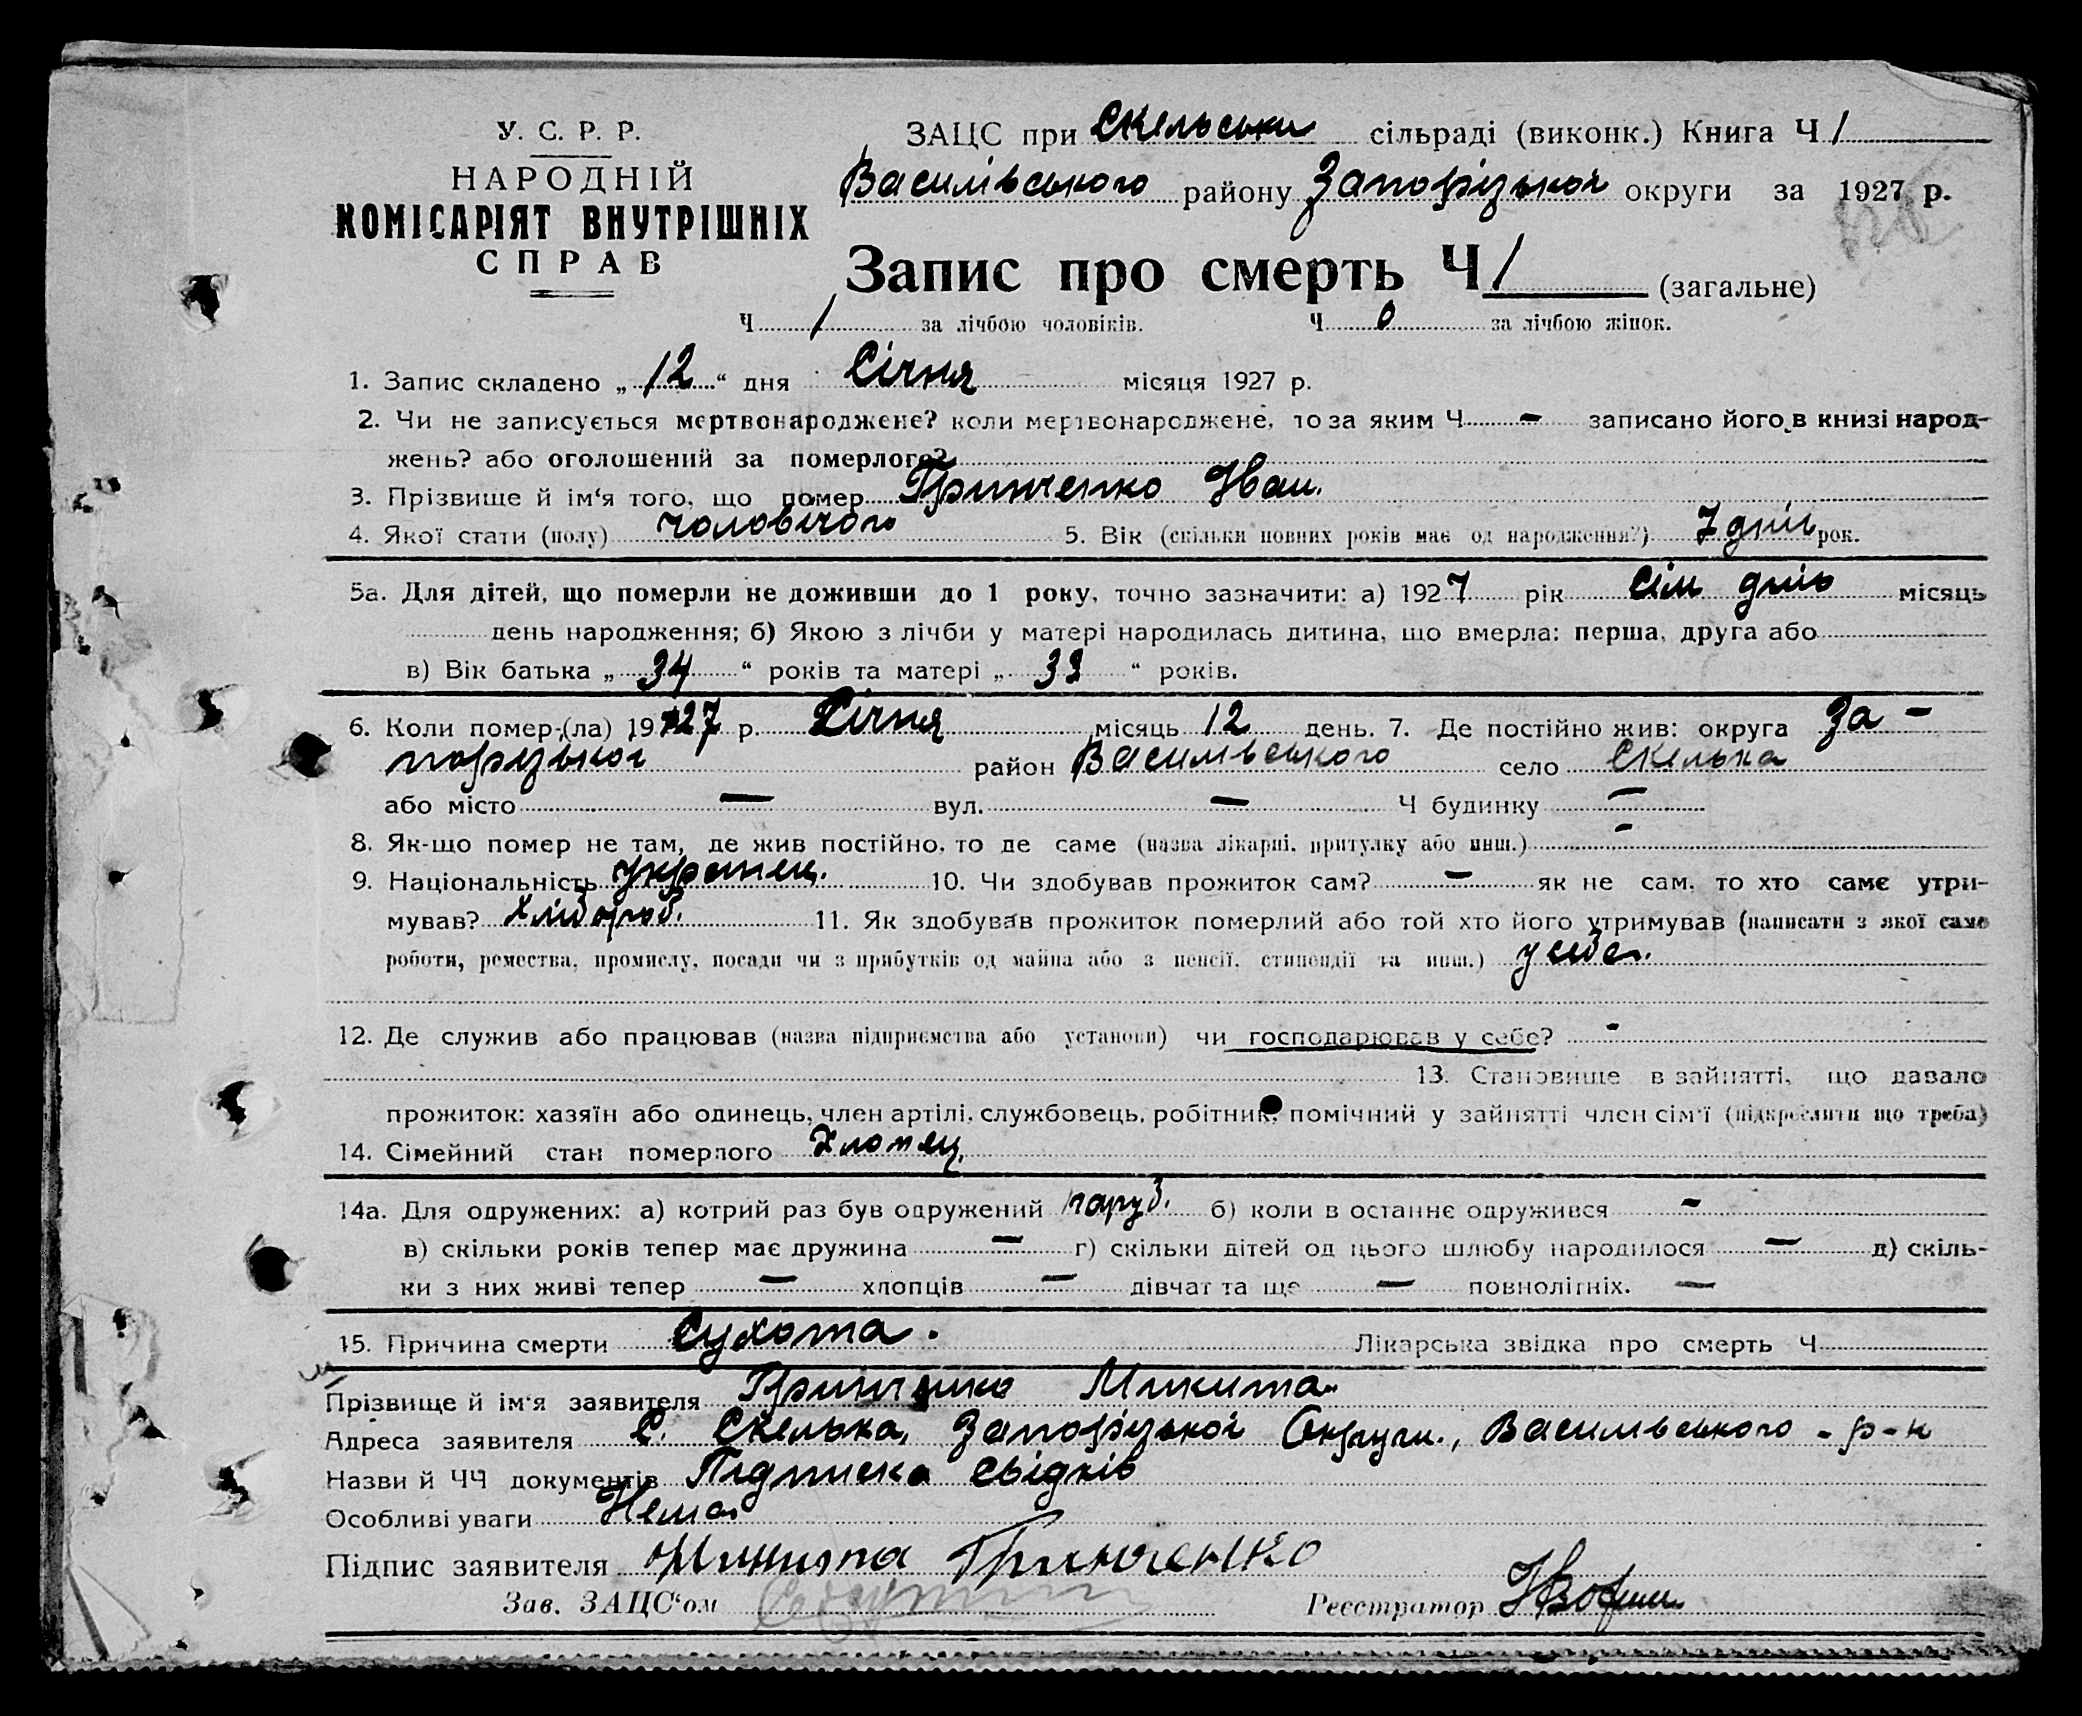 У. С. Р. Р.
НАРОДНІЙ
КОМІСАРІЯТ ВНУТРІШНІХ
СПРАВ
ЗАЦС при Скельський сільраді (виконк.) Книга Ч 1
Василівського району Запорізької округи за 1927 р.
Запис про смерть Ч 1 (загальне)
Ч 1 за лічбою чоловіків. Ч 0 за лічбою жінок.
1. Запис складено „ 12 “ дня Січня місяця 1927 р.
2. Чи не записується мертвонароджене? коли мертвонароджене, то за яким Ч - записано його в книзі народ-
жень? або оголошений за померлого?
3. Прізвище й ім‘я того, що помер Гринченко Іван.
4. Якої стати (полу) чоловічого 5. Вік (скільки повних років має од народження?) 7 днів рок.
5а. Для дітей, що померли не доживши до 1 року, точно зазначити: а) 1927 рік сім днів місяць
день народження; б) Якою з лічби у матері народилась дитина, що вмерла: перша, друга або
в) Вік батька „ 34 “ років та матері „ 33 “ років.
6. Коли помер-(ла) 1927 р. Січня місяць 12 день. 7. Де постійно жив: округа За -
порізької район Василівського село Скелька
або місто — вул. — Ч будинку —
8. Як-що помер не там, де жив постійно, то де саме (назва лікарні, притулку або инш.) -
9. Національність українец. 10. Чи здобував прожиток сам? - як не сам, то хто саме утри-
мував? Хлібороб. 11. Як здобував прожиток померлий або той хто його утримував (написати з якої саме
роботи, ремества, промислу, посади чи з прибутків од майна або з пенсії, стипендії та инш.) у себе.
12. Де служив або працював (назва підприємства або установи) чи господарював у себе? -
13. Становище в зайнятті, що давало
прожиток: хазяїн або одинець, член артілі, службовець, робітник, помічний у зайнятті член сім‘ї (підкреслити що треба)
14. Сімейний стан померлого Хлопец.
14а. Для одружених: а) котрий раз був одружений б) коли в останнє одружився -
в) скільки років тепер має дружина — г) скільки дітей од цього шлюбу народилося — д) скіль-
ки з них живі тепер — хлопців — дівчат та ще — повнолітніх. —
15. Причина смерти Сухота. Лікарська звідка про смерть Ч
Прізвище й ім‘я заявителя Гринченко Микита
Адреса заявителя С. Скелька, Запорізької Округи, Василівського - р-н
Назви й ЧЧ документів Підписка свідків
Особливі уваги Нема
Підпис заявителя Микита Гринченко
Зав. ЗАЦС‘ом
Реєстратор